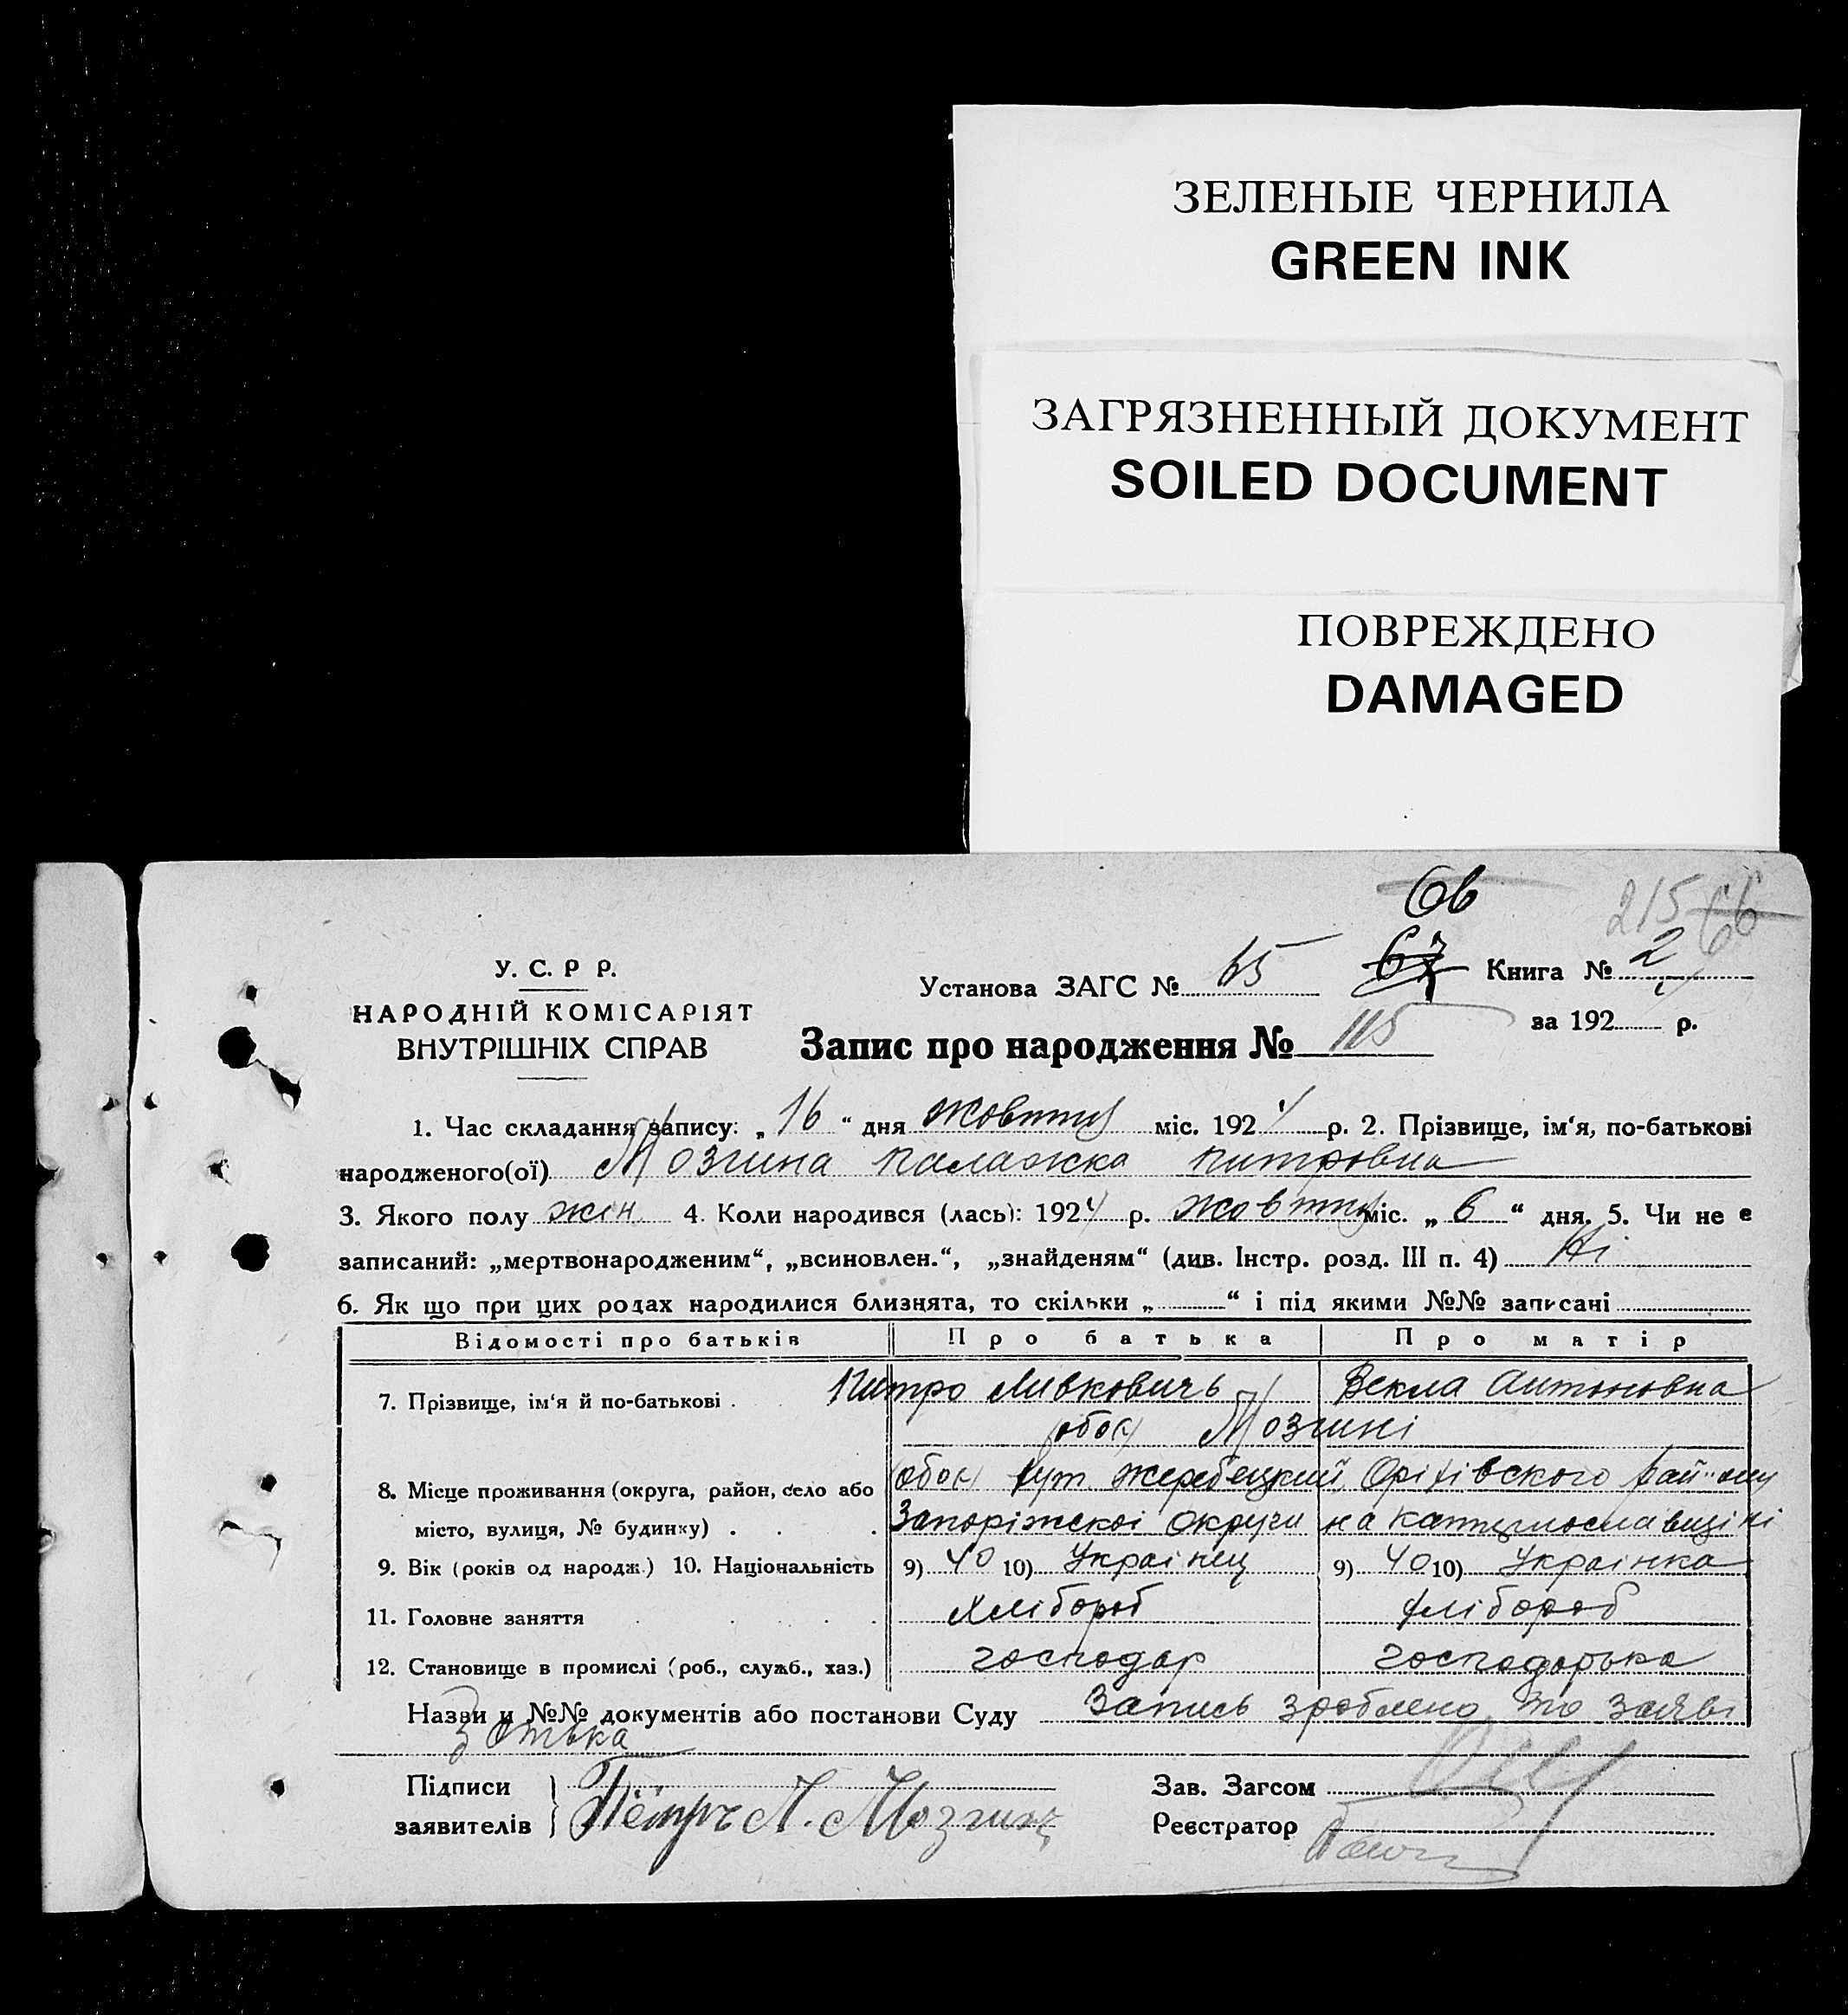 ЗЕЛЕНЫЕ ЧЕРНИЛА
GREEN INK
ЗАГРЯЗНЕННЫЙ ДОКУМЕНТ
SOILED DOCUMENT
ПОВРЕЖДЕНО
DAMAGED
66
215 66
У. С. Р Р.
НАРОДНІЙ КОМІСАРІЯТ
ВНУТРІШНІХ СПРАВ
Установа ЗАГС № 65 67 Книга № 2
за 192 р.
Запис про народження № 115
1. Час складання запису: „ 16 “ дня жовтня міс. 1924 р. 2. Прізвище, ім‘я, по-батькові
народженого(ої) Мозгина Палажка Питровна
3. Якого полу жін. 4. Коли народився (лась): 1924 р. жовтня міс. „ 6 “ дня. 5. Чи не є
записаний: „мертвонародженим“, „всиновлен.“, „знайденям“ (див. Інстр. розд. III п. 4) Ні
6. Як що при цих родах народилися близнята, то скільки „ “ і під якими №№ записані
Відомості про батьків Про батька Про матір
7. Прізвище, ім‘я й по-батькові . Питро Ливковичь Векла Антоновна
обоє Мозгині
8. Місце проживання (округа, район, село або обоє хут. Жеребецкий, Оріхівского район
місто, вулиця, № будинку) . . . Запоріжскоі округи на
9. Вік (років од народж.) 10. Національність 9) 40 10) Украінец 9) 40 10) Украінка
11. Головне заняття . . . . Хлібороб хлібороб
12. Становище в промислі (роб., служб., хаз.) господар господорька
Назви и №№ документів або постанови Суду Запись зроблено по заяві
Батька
Підписи
заявителів } Пётръ Л. Мозгин
Зав. Загсом
Реєстратор